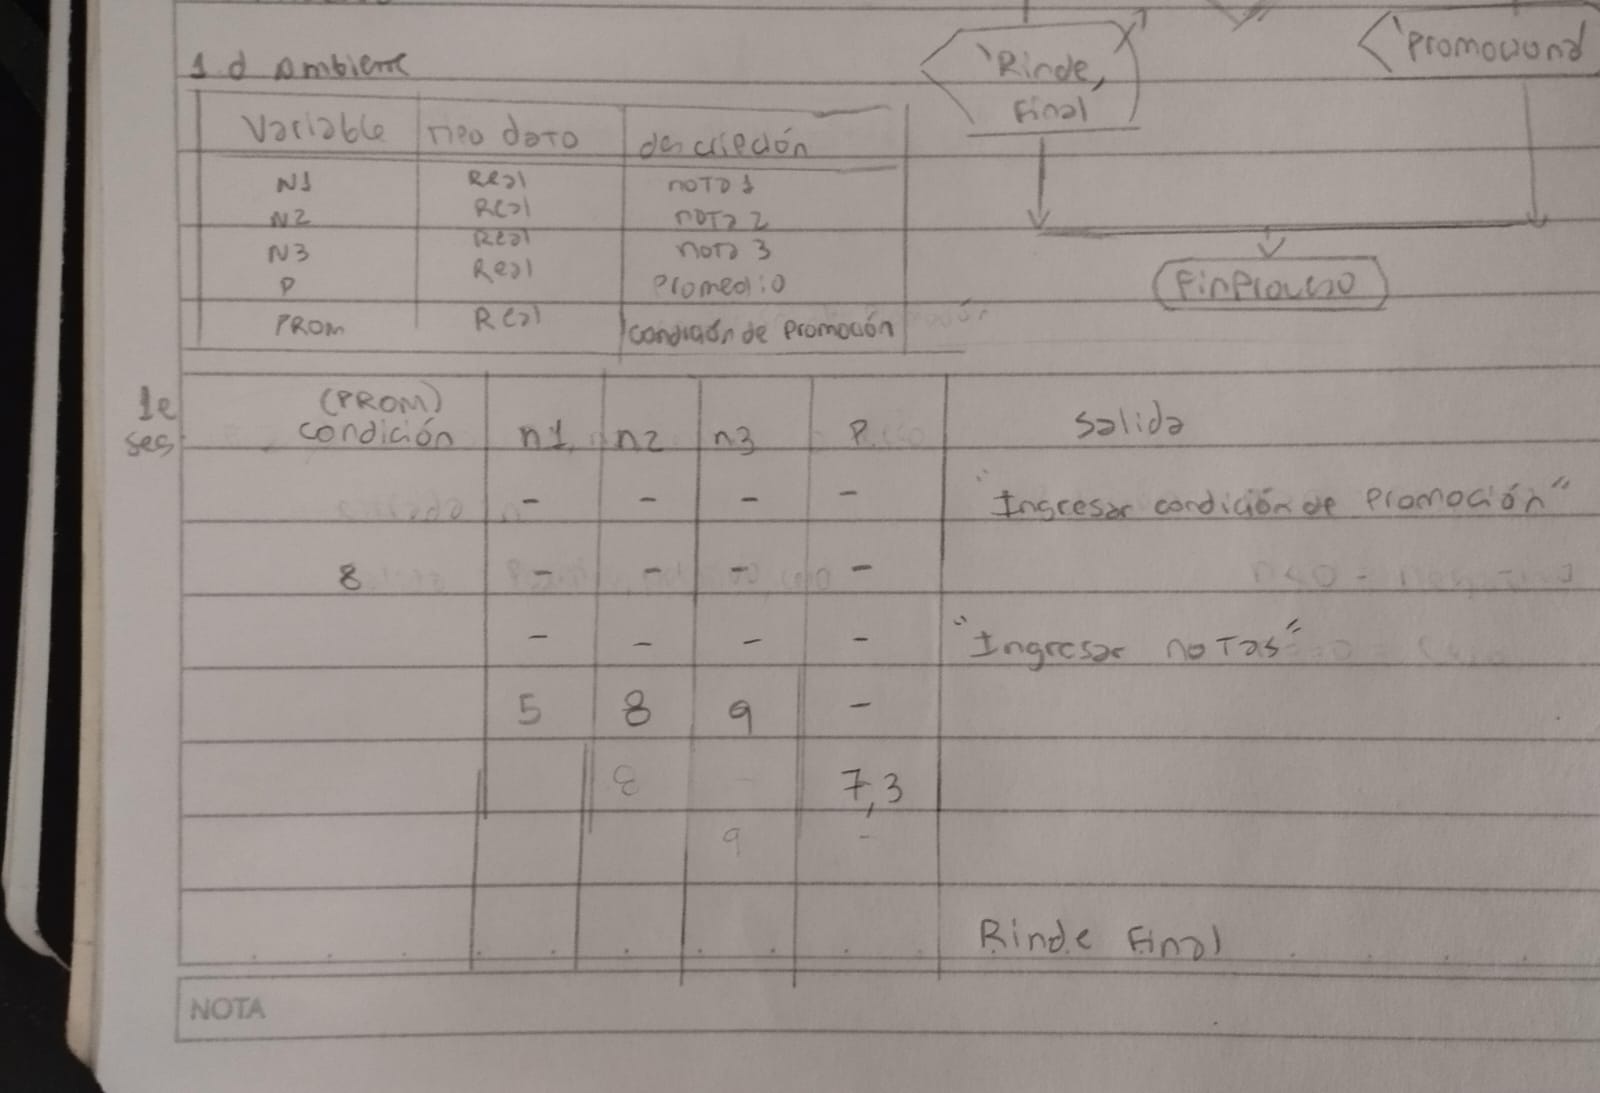 1 d Ambiente
Variable Tipo dato descripción
N1 Real nota 1
N2 Real nota 2
N3 Real nota 3
P Real Promedio
PROM Real condición de Promoción
"Rinde,
Final
"Promociona
FinProceso
1e
ses
(PROM)
condición n1 n2 n3 P Salida
- - - - "Ingresar condición de Promoción"
8 - - - -
- - - - "Ingresar notas"
5 8 9 -
8 7,3
9 -
Rinde Final
NOTA